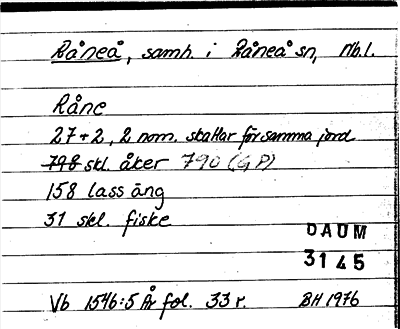 Råneå, samh. i Råneå sn, Nb.l.
Råne
27+2, 2 nom. skattar för samma jord
798 skl. åker 790 (GP)
158 lass äng
31 skl. fiske
DAUM
3145
Vb 1546:5 År fol. 33 r. BH 1976